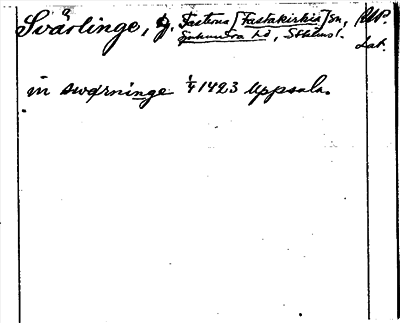 Svärlinge, g. Fasterna [Fastakirkia] sn, RAP.
Sjuhundra hd, Sthlms l. Lat.
in swerninge 1/4 1423 Uppsala.